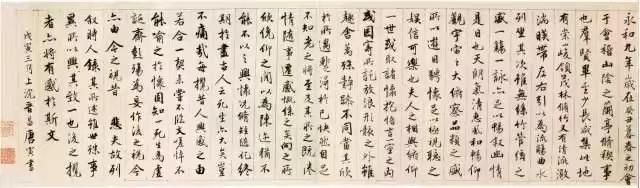 永和九年歲在癸丑暮春之初會
于會稽山陰之蘭亭脩稧事
也羣賢畢至少長咸集此地
有崇峻領茂林脩竹又有清流激
湍暎帶左右引以為流觴曲水
列坐其次雖無絲竹管弦之
盛一觴一詠亦足以暢敘幽情
是日也天朗氣清惠風和暢仰
觀宇宙之大俯察品類之盛
所以遊目騁懷足以極視聽之
娛信可樂也夫人之相與俯仰
一世或取諸懷抱悟言一室之內
或因寄所託放浪形骸之外雖
趣舍萬殊靜躁不同當其欣
於所遇暫得於己快然自足
不知老之將至及其所之既惓
情隨事遷感慨係之矣向之所
欣俛仰之閒以為陳迹猶不
能不以之興懷況脩短隨化終
期於盡古人云死生亦大矣豈
不痛哉每攬昔人興感之由
若合一契未嘗不臨文嗟悼不
能喻之於懷固知一死生為虛
誕齊彭殤為妄作後之視今
亦由今之視昔 悲夫故列
敘時人錄其所述雖世殊事
異所以興懷其致一也後之攬
者亦將有感於斯文
戊寅三月上 晉昌唐寅書